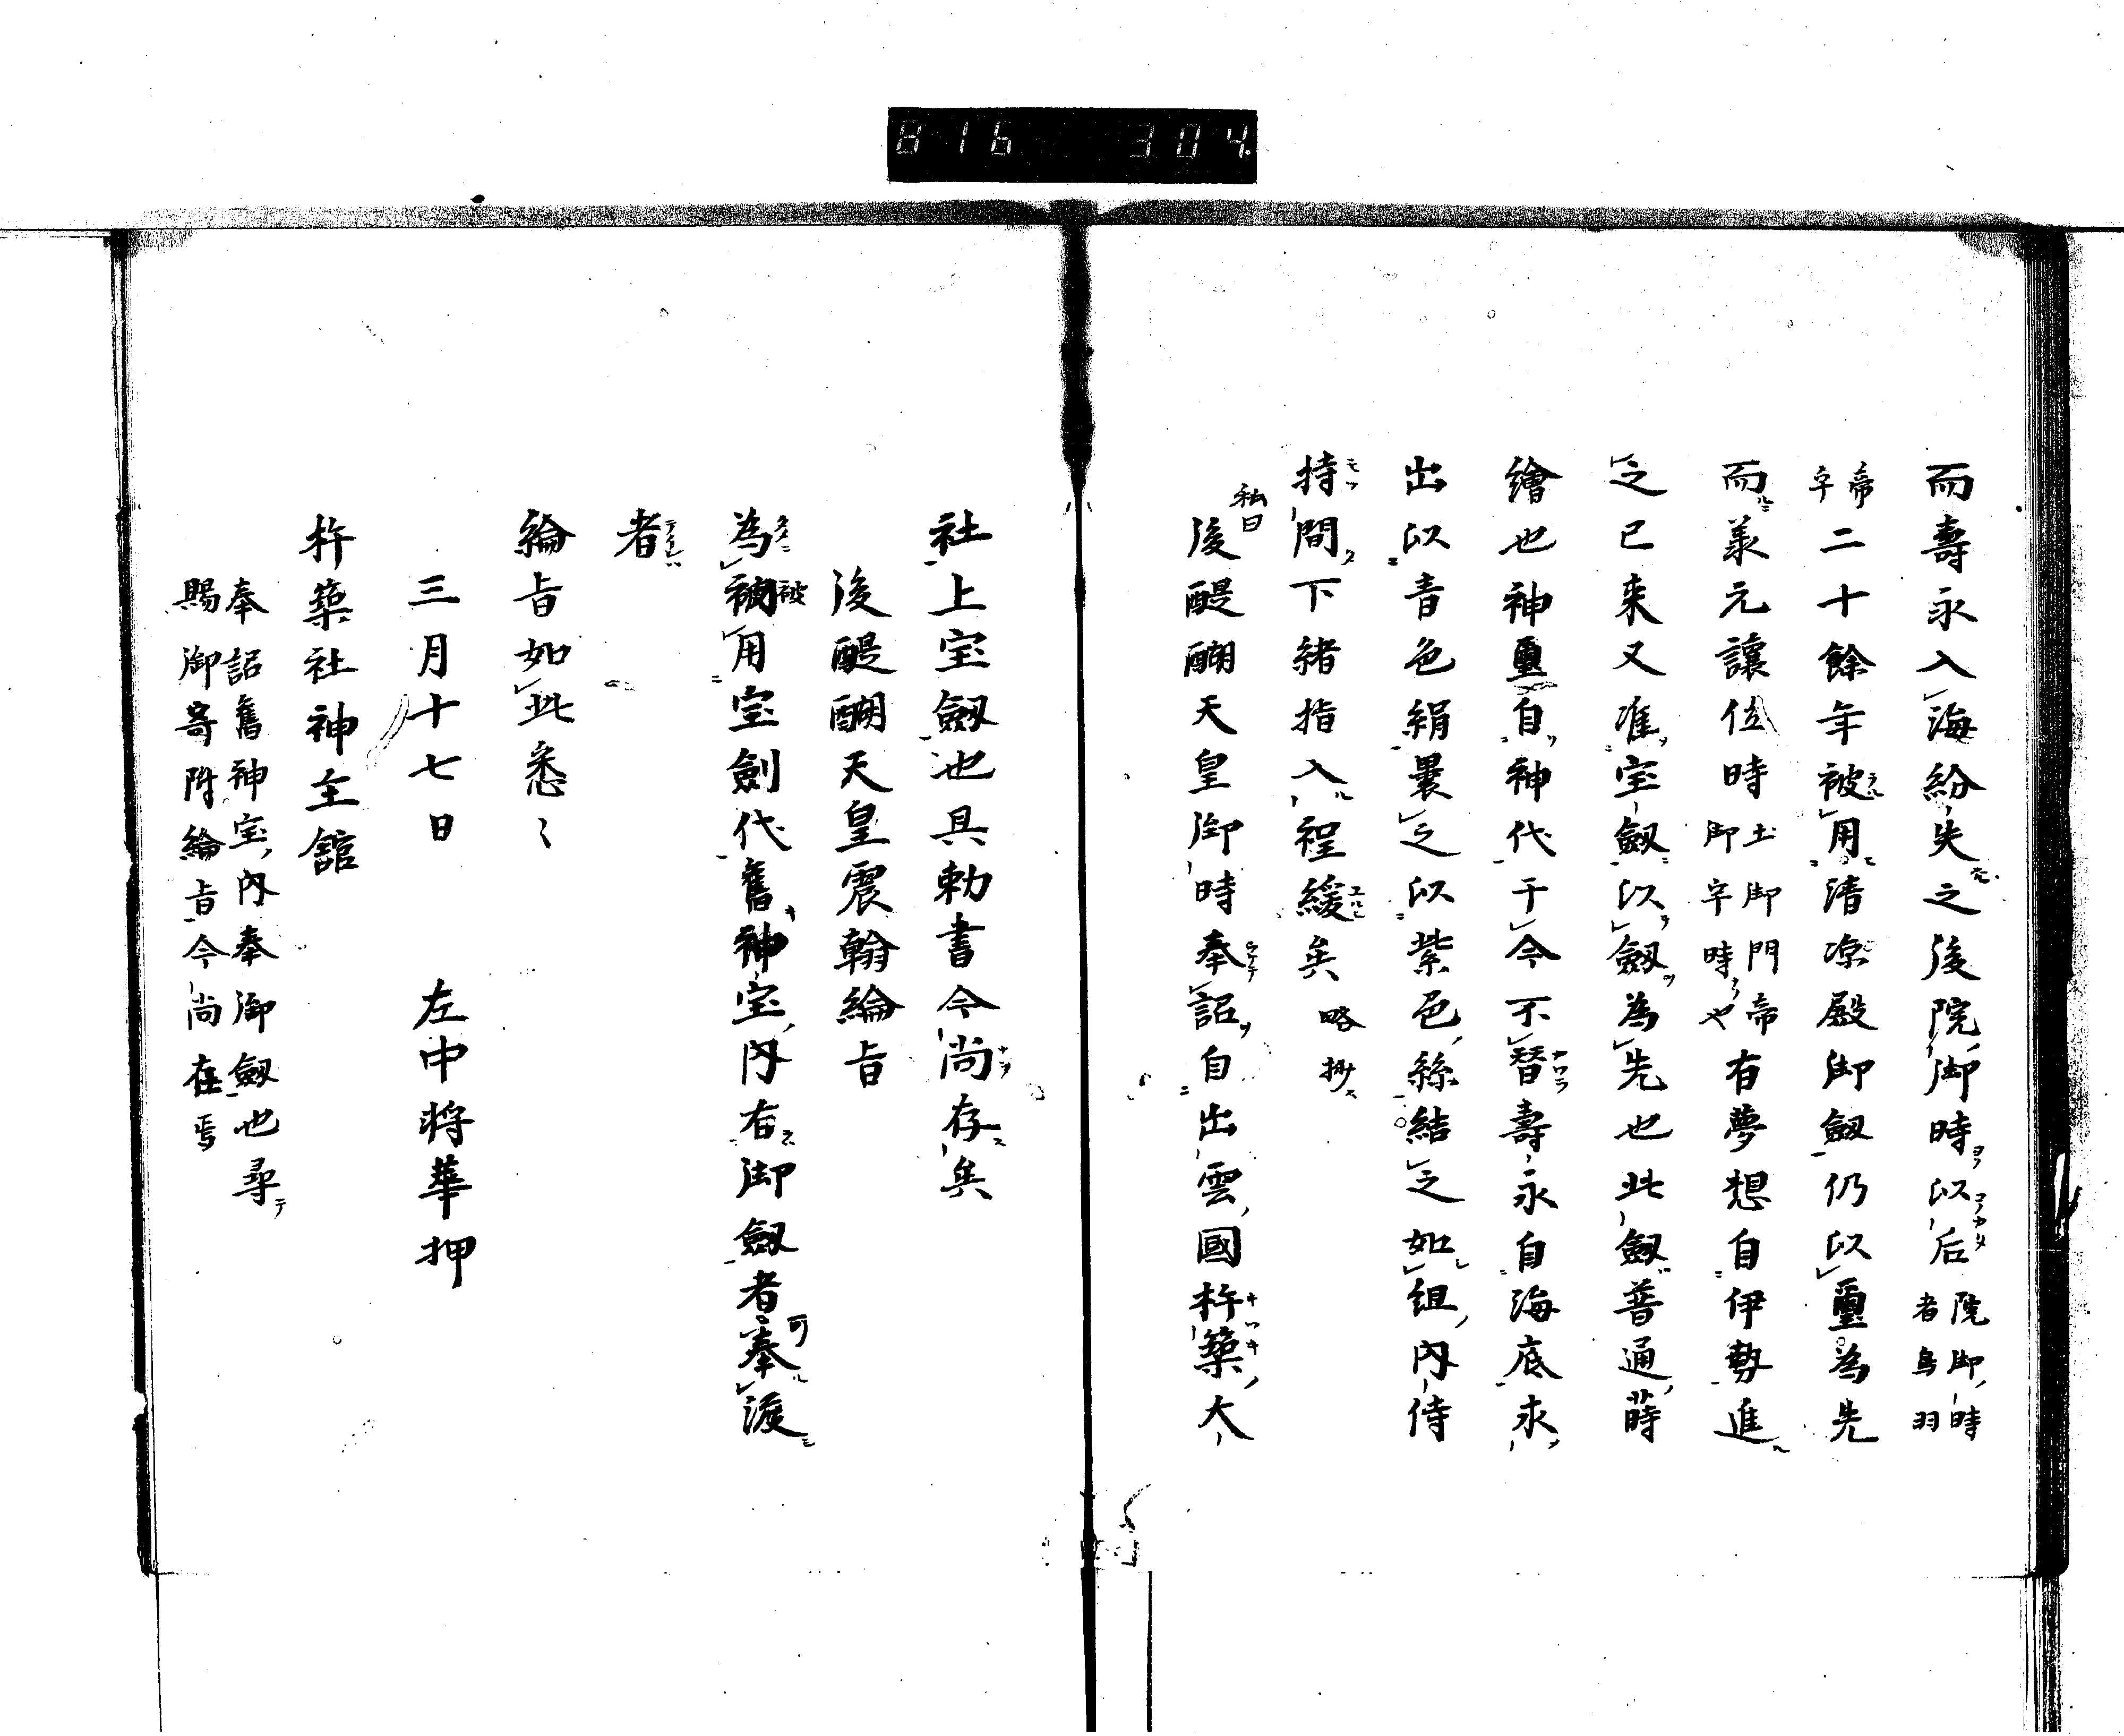 816 304
而壽永入海紛失之後院御時以后院御時者鳥羽
帝宇二十餘年被用清凉殿御劔仍以璽為先
而義元讓位時土御門帝御宇時や有夢想自伊勢進
之已来又准宝劔以劔為先也此劔普通蒔
繪也神璽自神代于今不替壽永自海底求
出以青色絹裹之以紫色絲結之如組内侍
持間下緒指入程緩矣略抄
私曰
後醍醐天皇御時奉詔自出雲國杵築大
社上宝劔也具勅書今尚存矣
後醍醐天皇震翰綸旨
為被用宝劍代舊神宝内右御劔者可奉渡
者
綸旨如此悉〻
三月十七日 左中将華押
杵築社神主舘
奉詔舊神宝内奉御劔也尋
賜御寄附綸旨今尚在焉